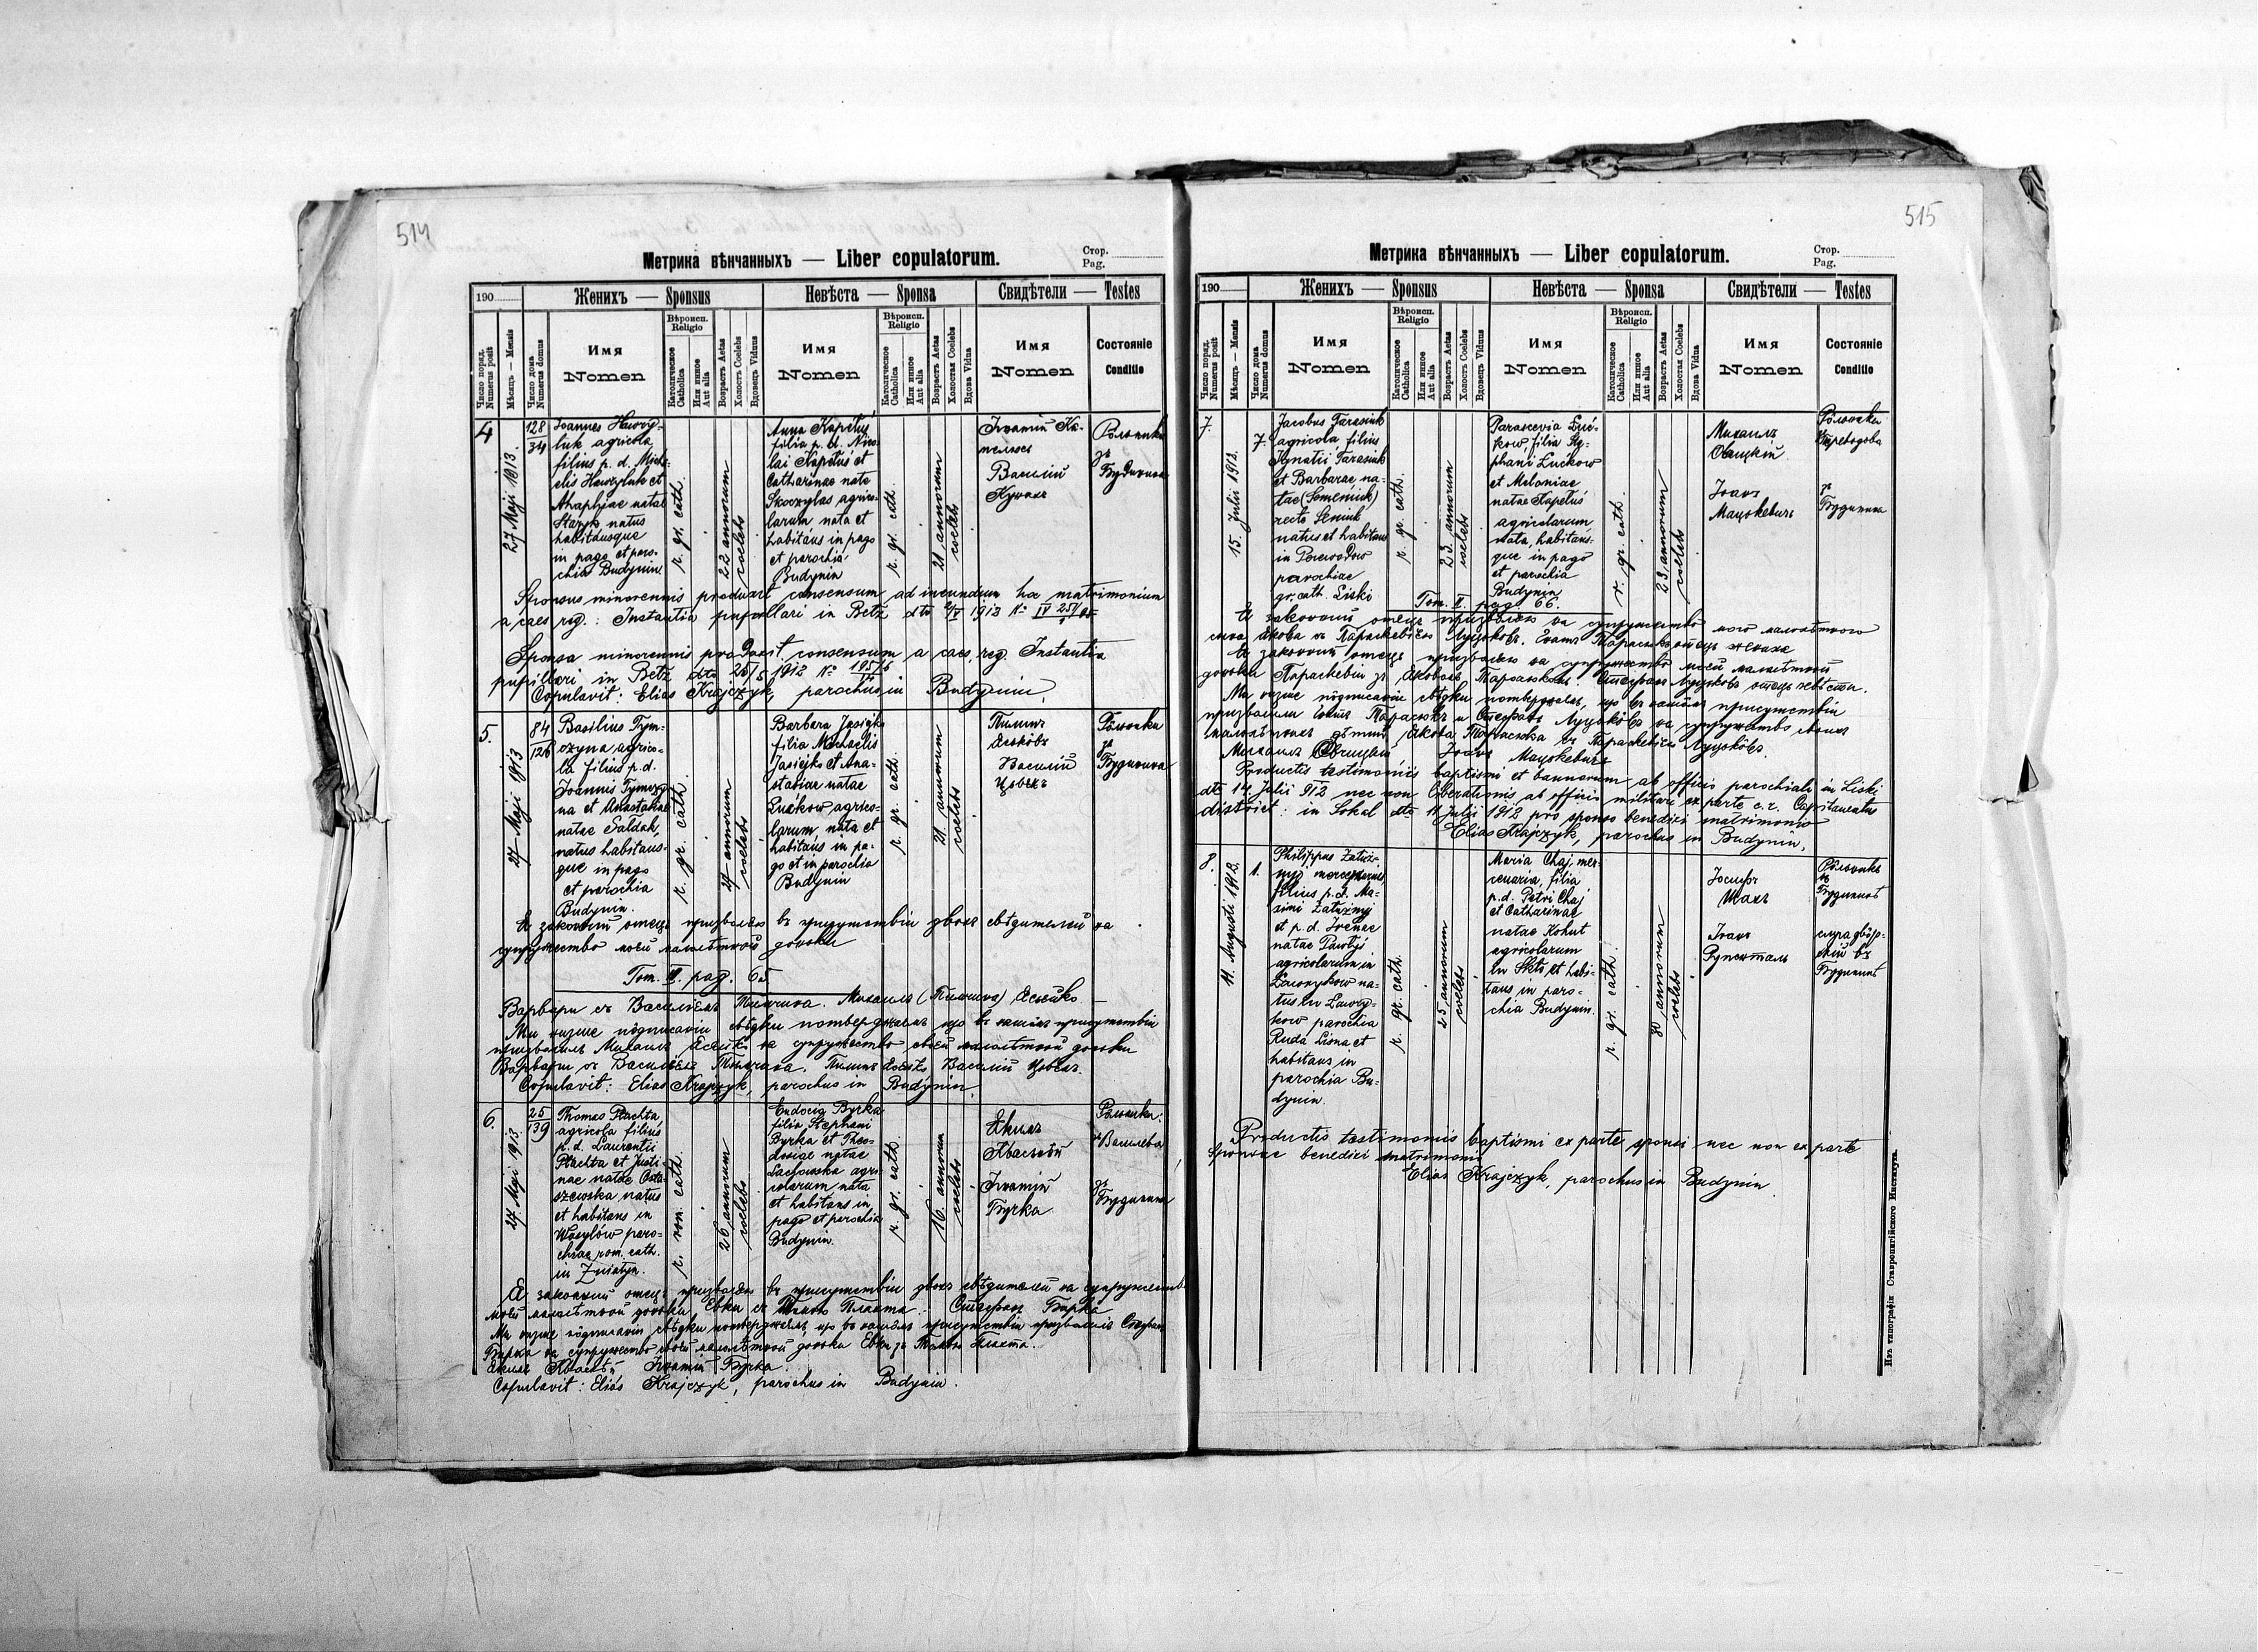 514
Метрика вѣнчанныхъ — Liber copulatorum.
Стор.
Pag.
190
Женихъ — Sponsus
Невѣста — Sponsa
Свидѣтели — Testes
Число поряд.
Numerus posit
Мѣсяцъ — Mensis
Число дома
Numerus domus
Имя
Nomen
Вѣроисп.
Religio
Католическое
Catholica
Или иное
Aut alia
Возрастъ Aetas
Холостъ Coelebs
Вдовець Viduus
Имя
Nomen
Вѣроисп.
Religio
Католическое
Catholica
Или иное
Aut alia
Возрастъ Aetas
Холостая Coelebs
Вдова Vidua
Имя
Nomen
Состояніе
Conditio
4
27 Maji 1913.
128
34
Joannes Hawry-
luk agricola
filius p. d. Micha-
elis Hawryluk et
natae
Staryk natus
habitansque
in pago et paro-
chia Budynin
r. gr. cath.
23 annorum
coelebs
Anna Kapeluś
filia p. d. Nico-
lai Kapeluś et
Catharinae natae
Skoczylas agrico-
larum nata et
habitans in pago
et parochia
Budynin
r. gr. cath.
21 annorum
coelebs
Игнатій Ка-
пелюсъ
Василій
Рольники
зъ
Будинина
Sponsus minorennis produxit consensum ad ineundum hoc matrimonium
a caes. reg. Instantia pupillari in Bełz dto 1912 No IV
Sponsa minorennis produxit consensum a caes. reg. Instantia
pupillari in Bełz dto 25/5 1912 No
Copulavit: Elias Krajczyk, parochus in Budynin.
5.
27 Maji 1913
84
126
Basilius Tym-
czyna agrico-
la filius p. d.
Joannis Tymczy-
na et Anastasiae
natae Sałdak,
natus habitans-
que in pago
et parochia
Budynin.
r. gr. cath.
27 annorum
coelebs
Barbara Jasiejko
filia Michaelis
Jasiejko et Ana-
stasiae natae
Łuckow agrico-
larum, nata et
habitans in pa-
go et in parochia
Budynin
r. gr. cath.
21. annorum
coelebs
Пилипъ
Василій
Рольники
зъ
Будинина
Я законный отецъ призваляю въ присутствіи двохъ свѣдителей на
супружество моей малолѣтной доньки
Tom. II. pag. 65
Варвары съ Василіемъ
Ми низше подписаніи свѣдки потверджаемъ що въ нашомъ присутствіи
призволилъ Михаилъ на супружество своей малолѣтной доньки
Варвары съ Василіемъ
Copulavit: Elias Krajczyk, parochus in Budynin.
6.
27 Maji 1913
25
139
Thomas Płachta,
agricola filius
p. d. Laurentii
Płachta et Justi-
nae natae Osta-
szewska natus
et habitans in
Wasylów paro-
chiae rom. cath.
in Żniatyn.
r. rom. cath.
26 annorum
coelebs
Eudocia Byrka
filia Stephani
Byrka et Theo-
dosiae natae
agri-
colarum nata
et habitans in
pago et parochia
Budynin.
r. gr. cath.
16. annorum
coelebs
Якимъ
Игнатій
Бурка
Рольники
Василева
зъ
Будинина
Я законный отецъ призваляю въ присутствіи двохъ свѣдителей на супружество
моей малолѣтной доньки Евки съ Плахта. Стефанъ Бырка
Ми низше подписаніи свѣдки потверджаемъ, що въ нашомъ присутствіи призволилъ Стефанъ
Бырка на супружество своей малолѣтной доньки Евки зъ Плахта.
Игнатій Бурка
Copulavit: Elias Krajczyk, parochus in Budynin.
515
Метрика вѣнчанныхъ — Liber copulatorum.
Стор.
Pag.
190
Женихъ — Sponsus
Невѣста — Sponsa
Свидѣтели — Testes
Число поряд.
Numerus posit
Мѣсяцъ — Mensis
Число дома
Numerus domus
Имя
Nomen
Вѣроисп.
Religio
Католическое
Catholica
Или иное
Aut alia
Возрастъ Aetas
Холостъ Coelebs
Вдовець Viduus
Имя
Nomen
Вѣроисп.
Religio
Католическое
Catholica
Или иное
Aut alia
Возрастъ Aetas
Холостая Coelebs
Вдова Vidua
Имя
Nomen
Состояніе
Conditio
7.
15 Julii 1912.
7.
Jacobus Tarasiuk
agricola filius
Ignatii Tarasiuk
et Barbarae na-
tae (Semeniuk)
recte Seniuk
natus et habitans
in Perewodow
parochiae
gr. cath. Liski
r. gr. cath.
23. annorum
coelebs
Parascevia
filia Ste-
phani Łuckow
et Melaniae
natae Kapeluś
agricolarum
nata, habitans-
que in pago
et parochia
Budynin
r. gr. cath.
23 annorum
coelebs
Михаилъ
Іоанъ
Мацькевичъ
Рольники
зъ Переводова
зъ
Будинина
Tom. II. pag. 66.
Я законный отецъ призваляю на супружество мого малолѣтного
сына Якова съ Параскевіею
Я законный отецъ призваляю на супружество моей малолѣтной
доньки Параскевіи зъ Яковомъ Тарасюкомъ. Стефанъ отецъ невѣсты.
Ми низше подписаніи свѣдки потверджаемъ, що въ нашомъ присутствіи
призволили Тарасюкъ и Стефанъ на супружество своихъ
малолѣтнихъ дѣтей Якова Тарасюка съ Параскевіею
Михаилъ Іоанъ Мацькевичъ
Productis testimoniis baptismi et bannorum ab officio parochiali in Liski
dto 14 Julii 912 nec non liberationis ab officio militari ex parte c. r. Capitaneatus
district. in Sokal dto 11 Julii 1912 pro sponso benedixi matrimonio
Elias Krajczyk, parochus in Budynin.
8.
11. Augusti 1912.
1.
Philippus
mercenarius,
filius p. d. Ma-
ximi
et p. d. Irenae
natae
agricolarum in
Ławrykow na-
tus in Ławry-
kow parochia
Ruda Lisna et
habitans in
parochia Bu-
dynin.
r. gr. cath.
25 annorum
coelebs
Maria Chaj, mer-
cenaria, filia
p. d. Petri Chaj
et Catharinae
natae Kohut
agricolarum
et habi-
tans in paro-
chia Budynin.
r. gr. cath.
30 annorum
coelebs
Іосифъ
Іоанъ
Рольникъ
въ
Будининѣ
слуга двор-
скій въ
Будининѣ
Productis testimoniis baptismi ex parte sponsi nec non ex parte
sponsae benedixi matrimonio
Elias Krajczyk, parochus in Budynin.
Изъ типографіи Ставропигійского Института.